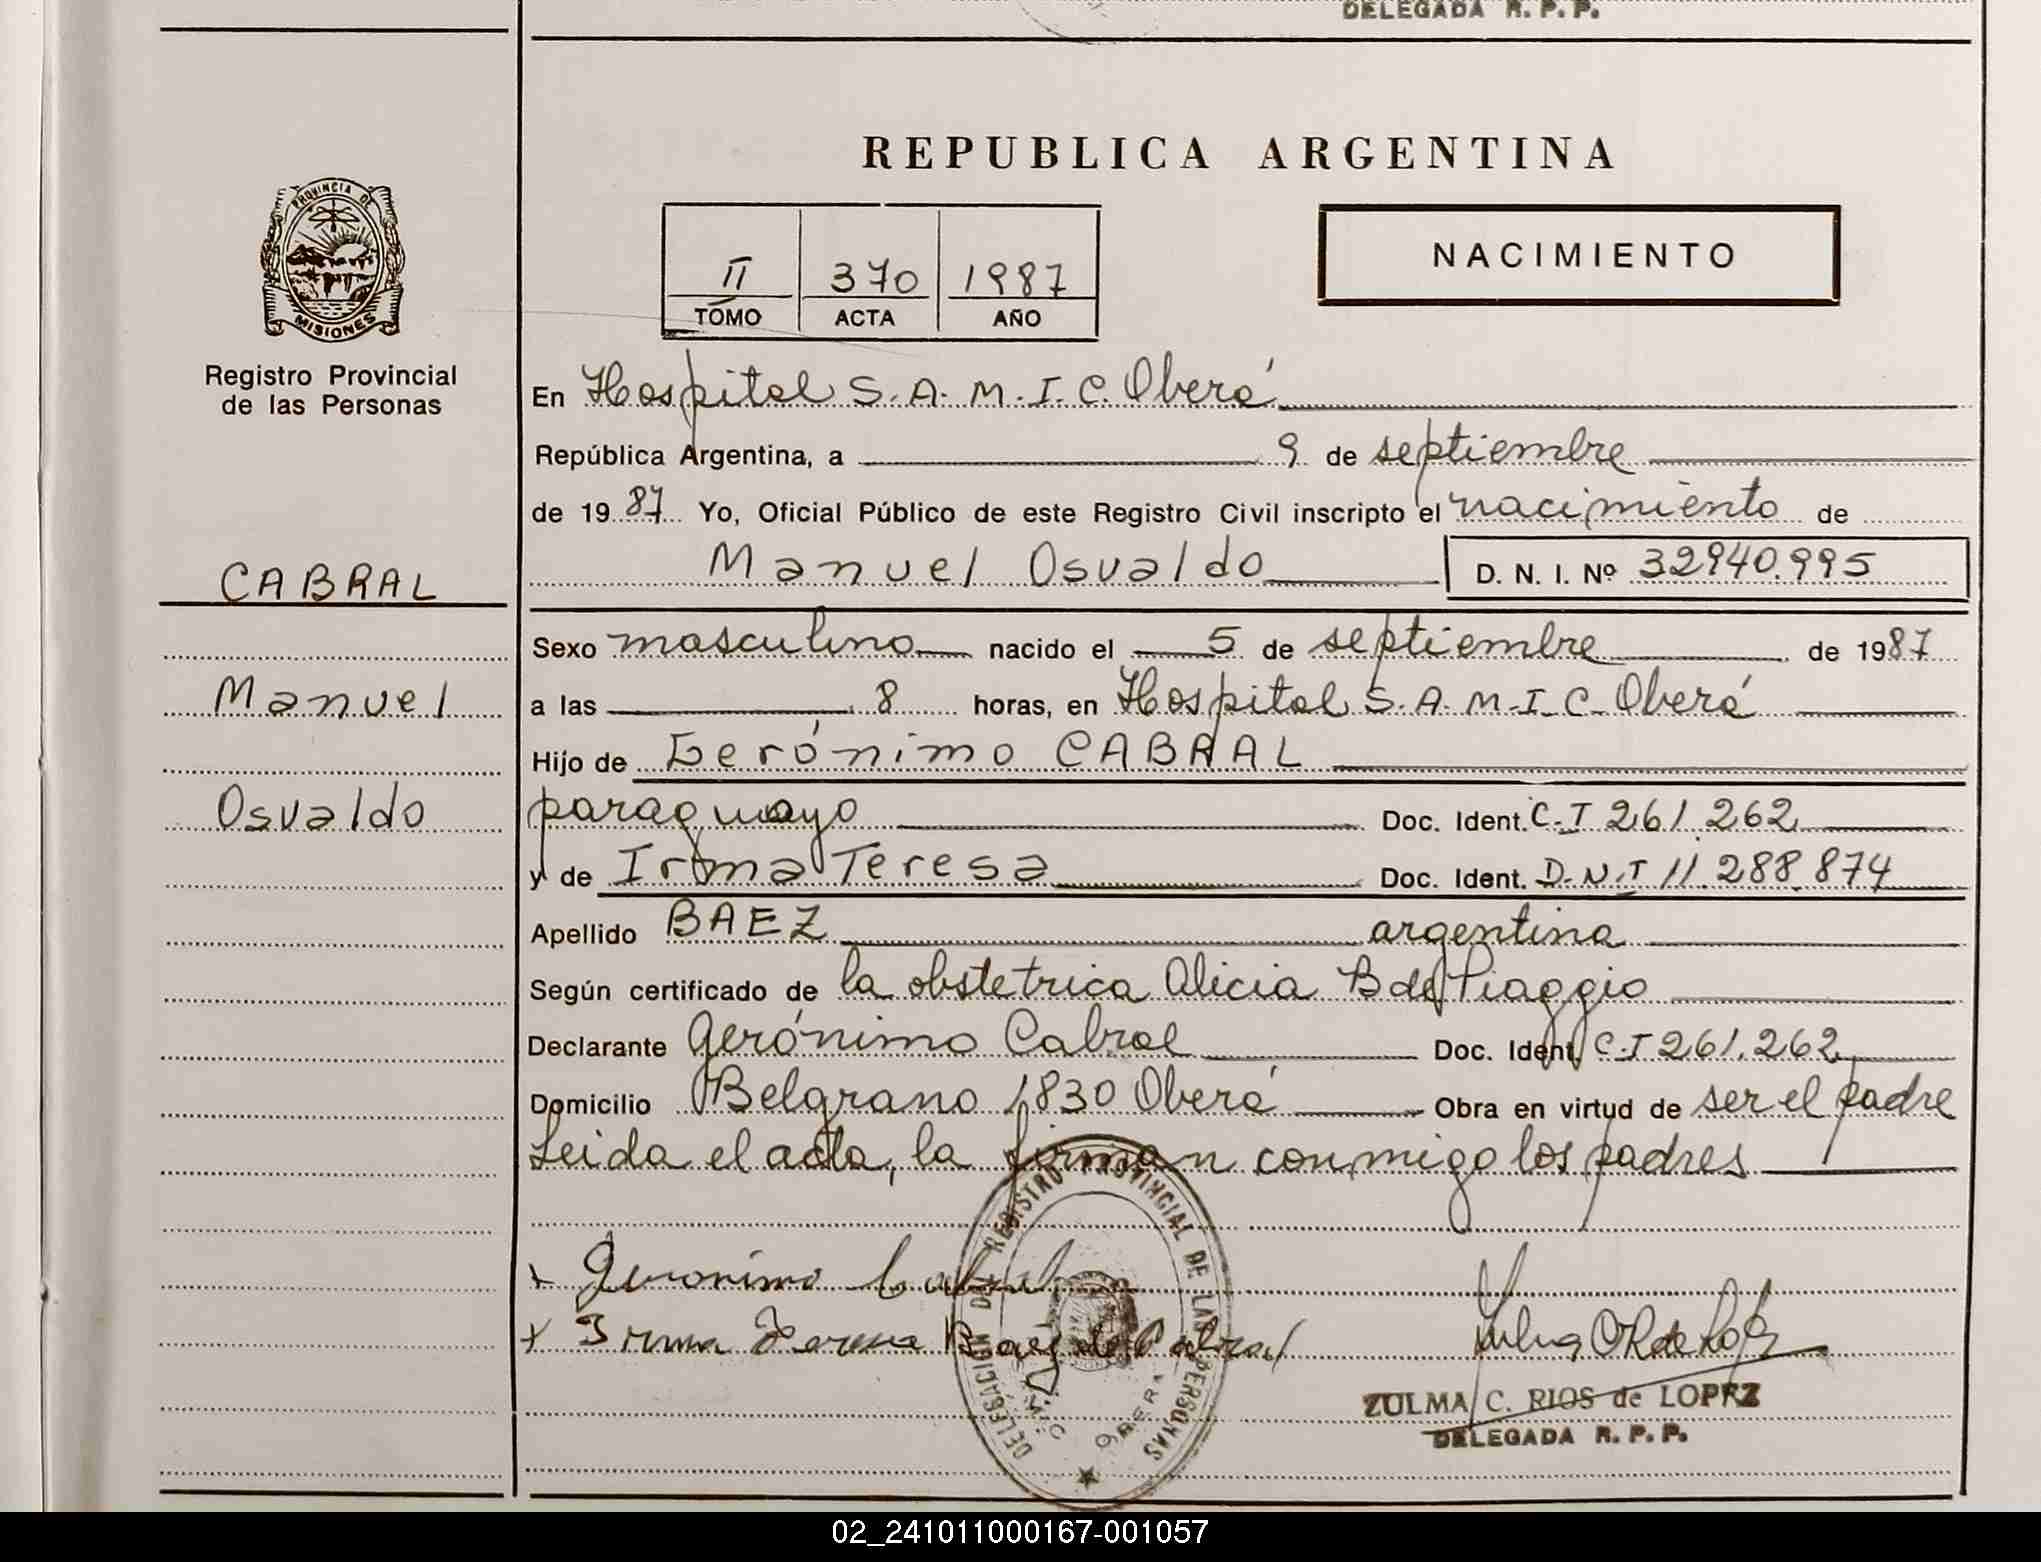 DELEGADA R. P. P.
REPUBLICA ARGENTINA
PROVINCIA DE
MISIONES
Registro Provincial
de las Personas
CABRAL
Manuel
Osvaldo
II 370 1987
TOMO ACTA AÑO
NACIMIENTO
En Hospital S.A.M.I.C. Oberá
República Argentina, a 9 de septiembre
de 1987 Yo, Oficial Público de este Registro Civil inscripto el nacimiento de
Manuel Osvaldo D. N. I. Nº 32940.995
Sexo masculino nacido el 5 de septiembre de 1987
a las 8 horas, en Hospital S.A.M.I.C. Oberá
Hijo de Gerónimo CABRAL
paraguayo Doc. Ident. C.I 261.262
y de Irma Teresa Doc. Ident. D.N.I 11.288.874
Apellido BAEZ argentina
Según certificado de la obstetrica Alicia B de Piaggio
Declarante Gerónimo Cabral Doc. Ident. C.I 261.262
Domicilio Belgrano 1830 Oberá Obra en virtud de ser el padre
Leida el acta, la firman conmigo los padres
Geronimo Cabral
Irma Teresa Baez de Cabral
DELEGACION DEL REGISTRO PROVINCIAL DE LAS PERSONAS
OBERA
ZULMA C. RIOS de LOPEZ
DELEGADA R. P. P.
02_241011000167-001057